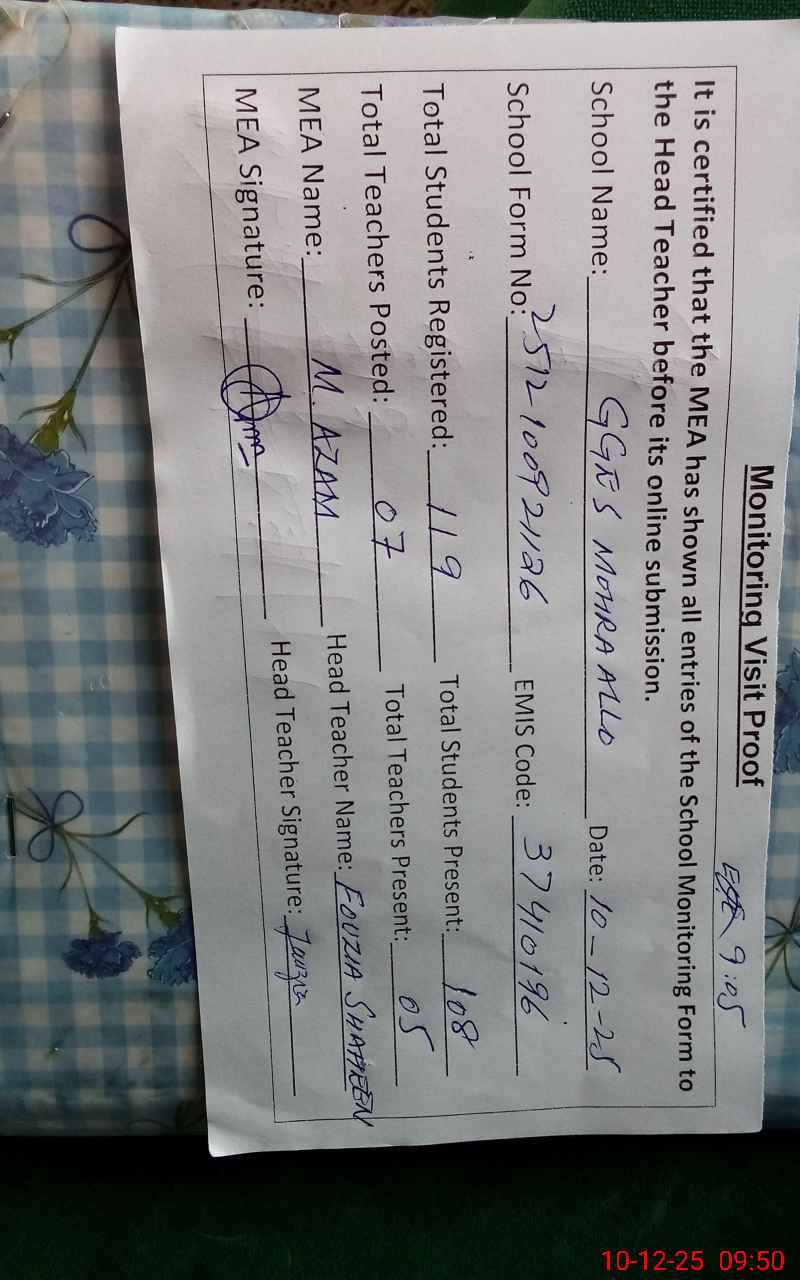 Monitoring Visit Proof
9:05
It is certified that the MEA has shown all entries of the School Monitoring Form to
the Head Teacher before its online submission.
School Name: GGES MOHRA ALLO Date: 10-12-25
School Form No: 2512100921126 EMIS Code: 37410196
Total Students Registered: 119 Total Students Present: 108
Total Teachers Posted: 07 Total Teachers Present: 05
MEA Name: M. AZAM Head Teacher Name: FOUZIA SHAHEEN
MEA Signature: Head Teacher Signature: Fouzia
10-12-25 09:50